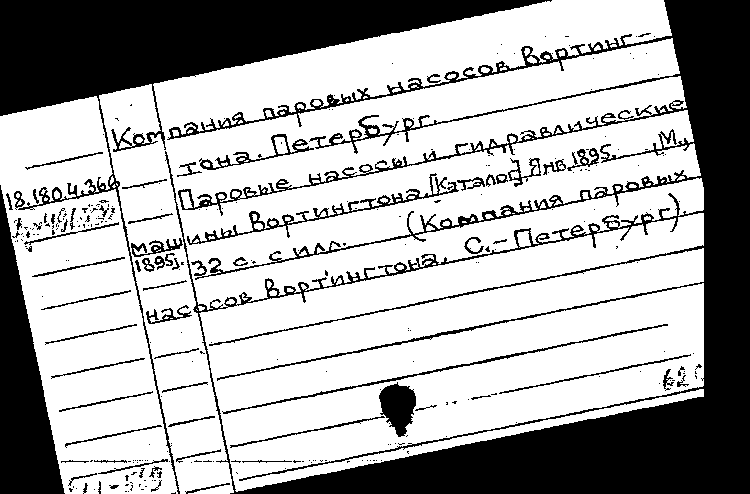 Компания паровых насосов Вортинг-
тона. Петербург.
18.180.4.366
Паровые насосы и гидравлические
машины Вортингтона. [Каталог]. Янв. 1895. [М.,
1895]. 32 с. с илл. (Компания паровых
насосов Вортингтона. С.-Петербург).
62